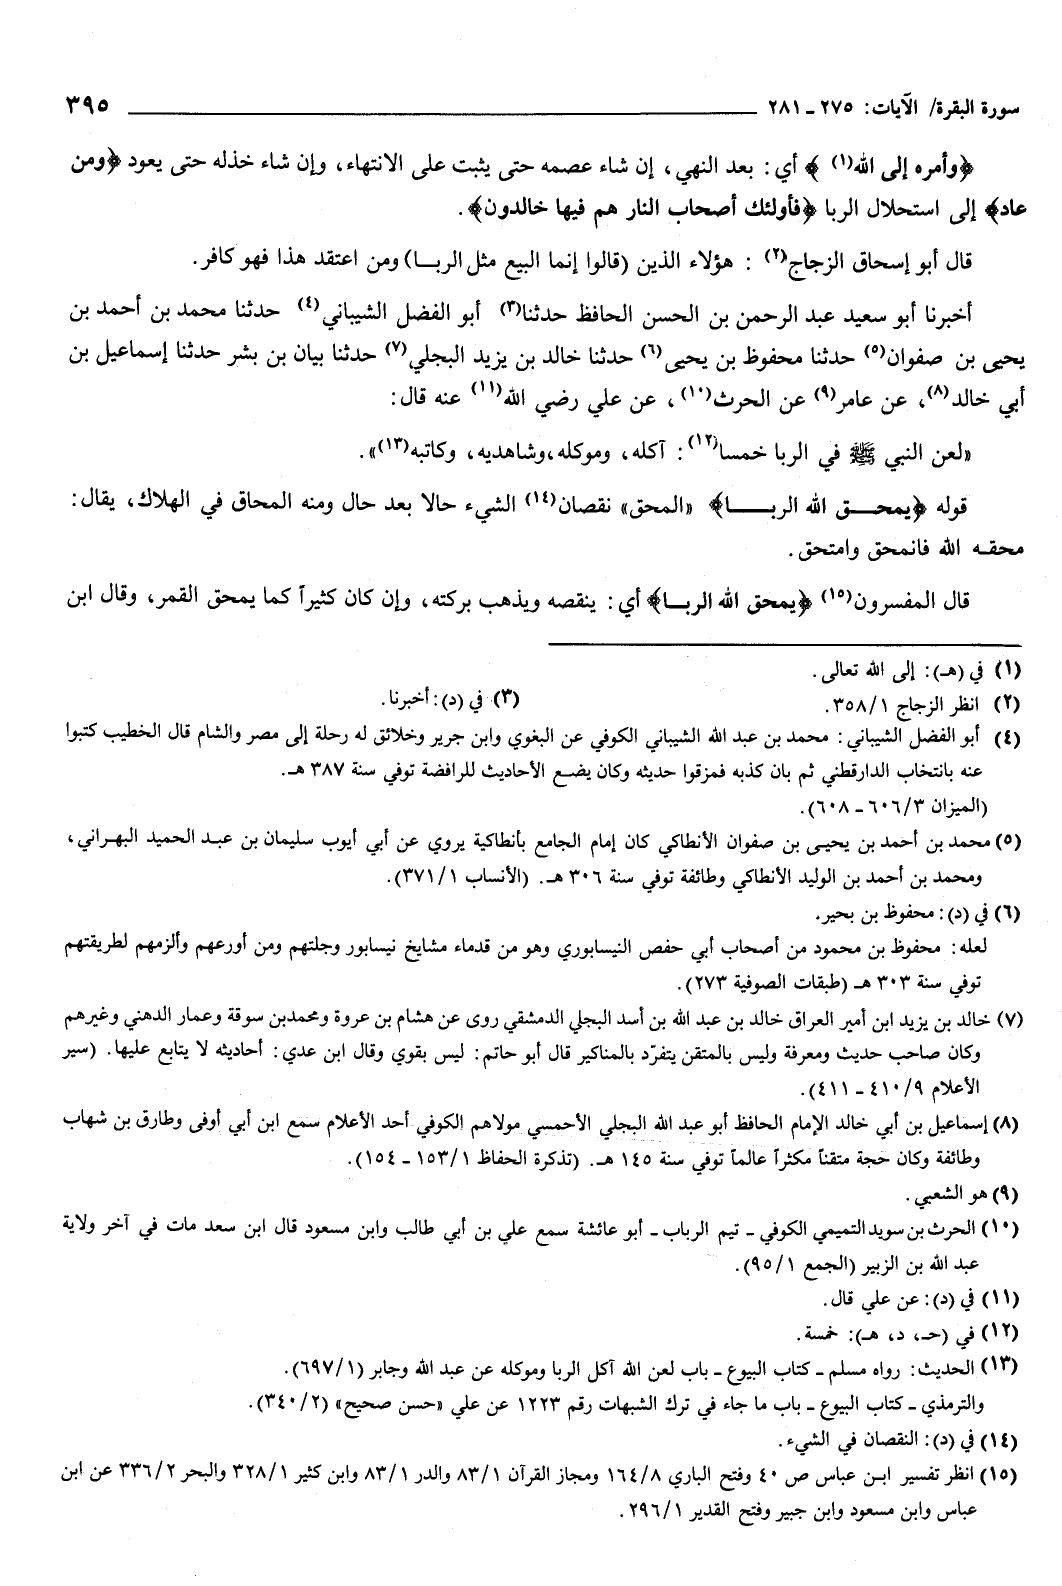 سورة البقرة/ الآيات: ٢٧٥ ـ ٢٨١ ٣٩٥
﴿وأمره إلى الله(١) ﴾ أي: بعد النهي، إن شاء عصمه حتى يثبت على الانتهاء، وإن شاء خذله حتى يعود ﴿ومن
عاد﴾ إلى استحلال الربا ﴿فأولئك أصحاب النار هم فيها خالدون﴾.
قال أبو إسحاق الزجاج(٢) : هؤلاء الذين (قالوا إنما البيع مثل الربـا) ومن اعتقد هذا فهو كافر.
أخبرنا أبو سعيد عبد الرحمن بن الحسن الحافظ حدثنا(٣) أبو الفضل الشيباني(٤) حدثنا محمد بن أحمد بن
يحيى بن صفوان(٥) حدثنا محفوظ بن يحيى(٦) حدثنا خالد بن يزيد البجلي(٧) حدثنا بيان بن بشر حدثنا إسماعيل بن
أبي خالد(٨)، عن عامر(٩) عن الحرث(١٠)، عن علي رضي الله(١١) عنه قال:
«لعن النبي ﷺ في الربا خمسا(١٢): آكله، وموكله،وشاهديه، وكاتبه(١٣)».
قوله ﴿يمحـق الله الربـــا﴾ «المحق» نقصان(١٤) الشيء حالا بعد حال ومنه المحاق في الهلاك، يقال:
محقـه الله فانمحق وامتحق.
قال المفسرون(١٥) ﴿يمحق الله الربـا﴾ أي: ينقصه ويذهب بركته، وإن كان كثيراً كما يمحق القمر، وقال ابن
(١) في (هـ): إلى الله تعالى.
(٢) انظر الزجاج ٣٥٨/١. (٣) في (د): أخبرنا.
(٤) أبو الفضل الشيباني: محمد بن عبد الله الشيباني الكوفي عن البغوي وابن جرير وخلائق له رحلة إلى مصر والشام قال الخطيب كتبوا
عنه بانتخاب الدارقطني ثم بان كذبه فمزقوا حديثه وكان يضع الأحاديث للرافضة توفي سنة ٣٨٧ هـ.
(الميزان ٦٠٦/٣ ـ ٦٠٨).
(٥) محمد بن أحمد بن يحيـى بن صفوان الأنطاكي كان إمام الجامع بأنطاكية يروي عن أبي أيوب سليمان بن عبـد الحميد البهـراني،
ومحمد بن أحمد بن الوليد الأنطاكي وطائفة توفي سنة ٣٠٦ هـ. (الأنساب ٣٧١/١).
(٦) في (د): محفوظ بن بحير.
لعله: محفوظ بن محمود من أصحاب أبي حفص النيسابوري وهو من قدماء مشايخ نيسابور وجلتهم ومن أورعهم وألزمهم لطريقتهم
توفي سنة ٣٠٣ هـ (طبقات الصوفية ٢٧٣).
(٧) خالد بن يزيد ابن أمير العراق خالد بن عبد الله بن أسد البجلي الدمشقي روى عن هشام بن عروة ومحمدبن سوقة وعمار الدهني وغيرهم
وكان صاحب حديث ومعرفة وليس بالمتقن يتفرّد بالمناكير قال أبو حاتم: ليس بقوي وقال ابن عدي: أحاديثه لا يتابع عليها. (سير
الأعلام ٤١٠/٩ ـ ٤١١).
(٨) إسماعيل بن أبي خالد الإمام الحافظ أبو عبد الله البجلي الأحمسي مولاهم الكوفي أحد الأعلام سمع ابن أبي أوفى وطارق بن شهاب
وطائفة وكان حجة متقناً مكثراً عالماً توفي سنة ١٤٥ هـ. (تذكرة الحفاظ ١٥٣/١ ـ ١٥٤).
(٩) هو الشعبي.
(١٠) الحرث بن سويد التميمي الكوفي ـ تيم الرباب ـ أبو عائشة سمع علي بن أبي طالب وابن مسعود قال ابن سعد مات في آخر ولاية
عبد الله بن الزبير (الجمع ٩٥/١).
(١١) في (د): عن علي قال.
(١٢) في (حـ، د، هـ): خمسة.
(١٣) الحديث: رواه مسلم ـ كتاب البيوع ـ باب لعن الله آكل الربا وموكله عن عبد الله وجابر (٦٩٧/١).
والترمذي ـ كتاب البيوع ـ باب ما جاء في ترك الشبهات رقم ١٢٢٣ عن علي «حسن صحيح» (٣٤٠/٢).
(١٤) في (د): النقصان في الشيء.
(١٥) انظر تفسير ابـن عباس ص ٤٠ وفتح الباري ١٦٤/٨ ومجاز القرآن ٨٣/١ والدر ٨٣/١ وابن كثير ٣٢٨/١ والبحر ٣٣٦/٢ عن ابن
عباس وابن مسعود وابن جبير وفتح القدير ٢٩٦/١.